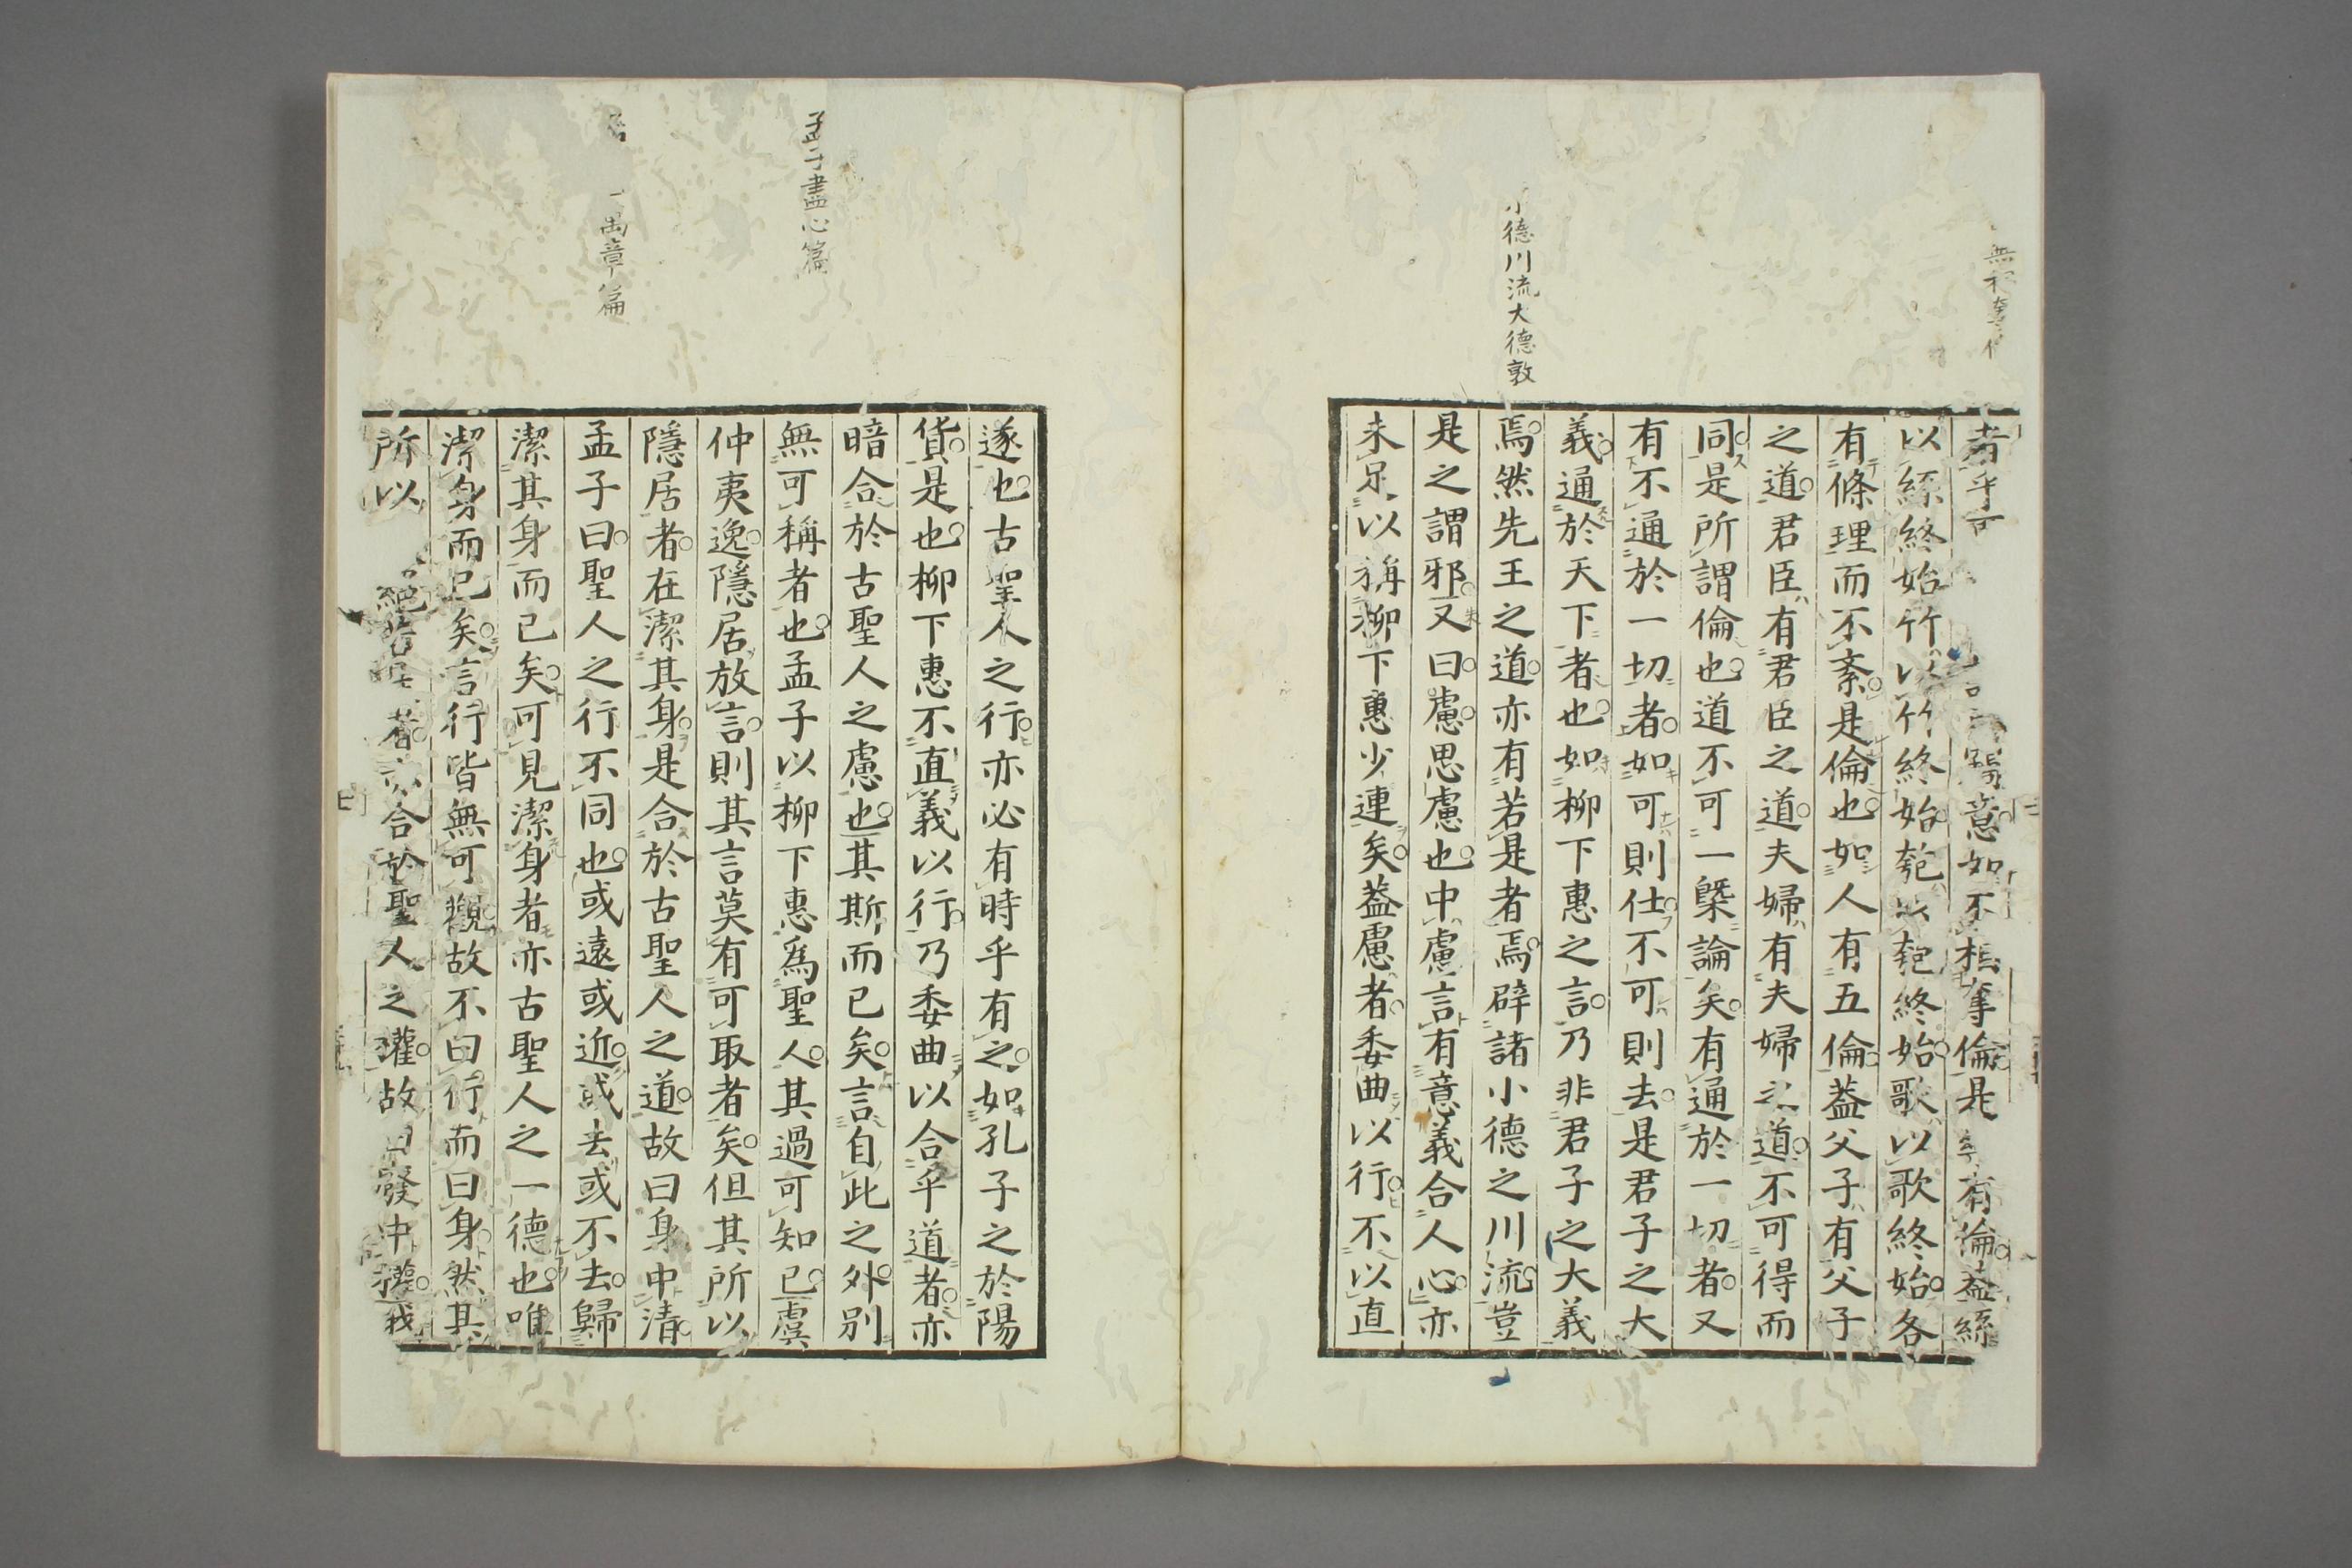 小德川流大德敦
者乎可
意如不相奪倫是有倫蓋絲
以絲終始竹以竹終始匏以匏終始歌以歌終始各
有條理而不紊是倫也如人有五倫蓋父子有父子
之道君臣有君臣之道夫婦有夫婦之道不可得而
同是所謂倫也道不可一槩論矣有通於一切者又
有不通於一切者如可則仕不可則去是君子之大
義通於天下者也如柳下惠之言乃非君子之大義
焉然先王之道亦有若是者焉辟諸小德之川流豈
是之謂邪又曰慮思慮也中慮言有意義合人心亦
未足以稱柳下惠少連矣蓋慮者委曲以行不以直
孟子盡心篇
章篇
遂也古聖人之行亦必有時乎有之如孔子之於陽
貨是也柳下惠不直義以行乃委曲以合乎道者亦
暗合於古聖人之慮也其斯而已矣言自此之外別
無可稱者也孟子以柳下惠爲聖人其過可知已虞
仲夷逸隱居放言則其言莫有可取者矣但其所以
隱居者在潔其身是合於古聖人之道故曰身中清
孟子曰聖人之行不同也或遠或近或去或不去歸
潔其身而已矣可見潔身者亦古聖人之一德也唯
潔身而已矣言行皆無可觀故不曰行而曰身然其
所以絕者亦合於聖人之權故曰發中權我